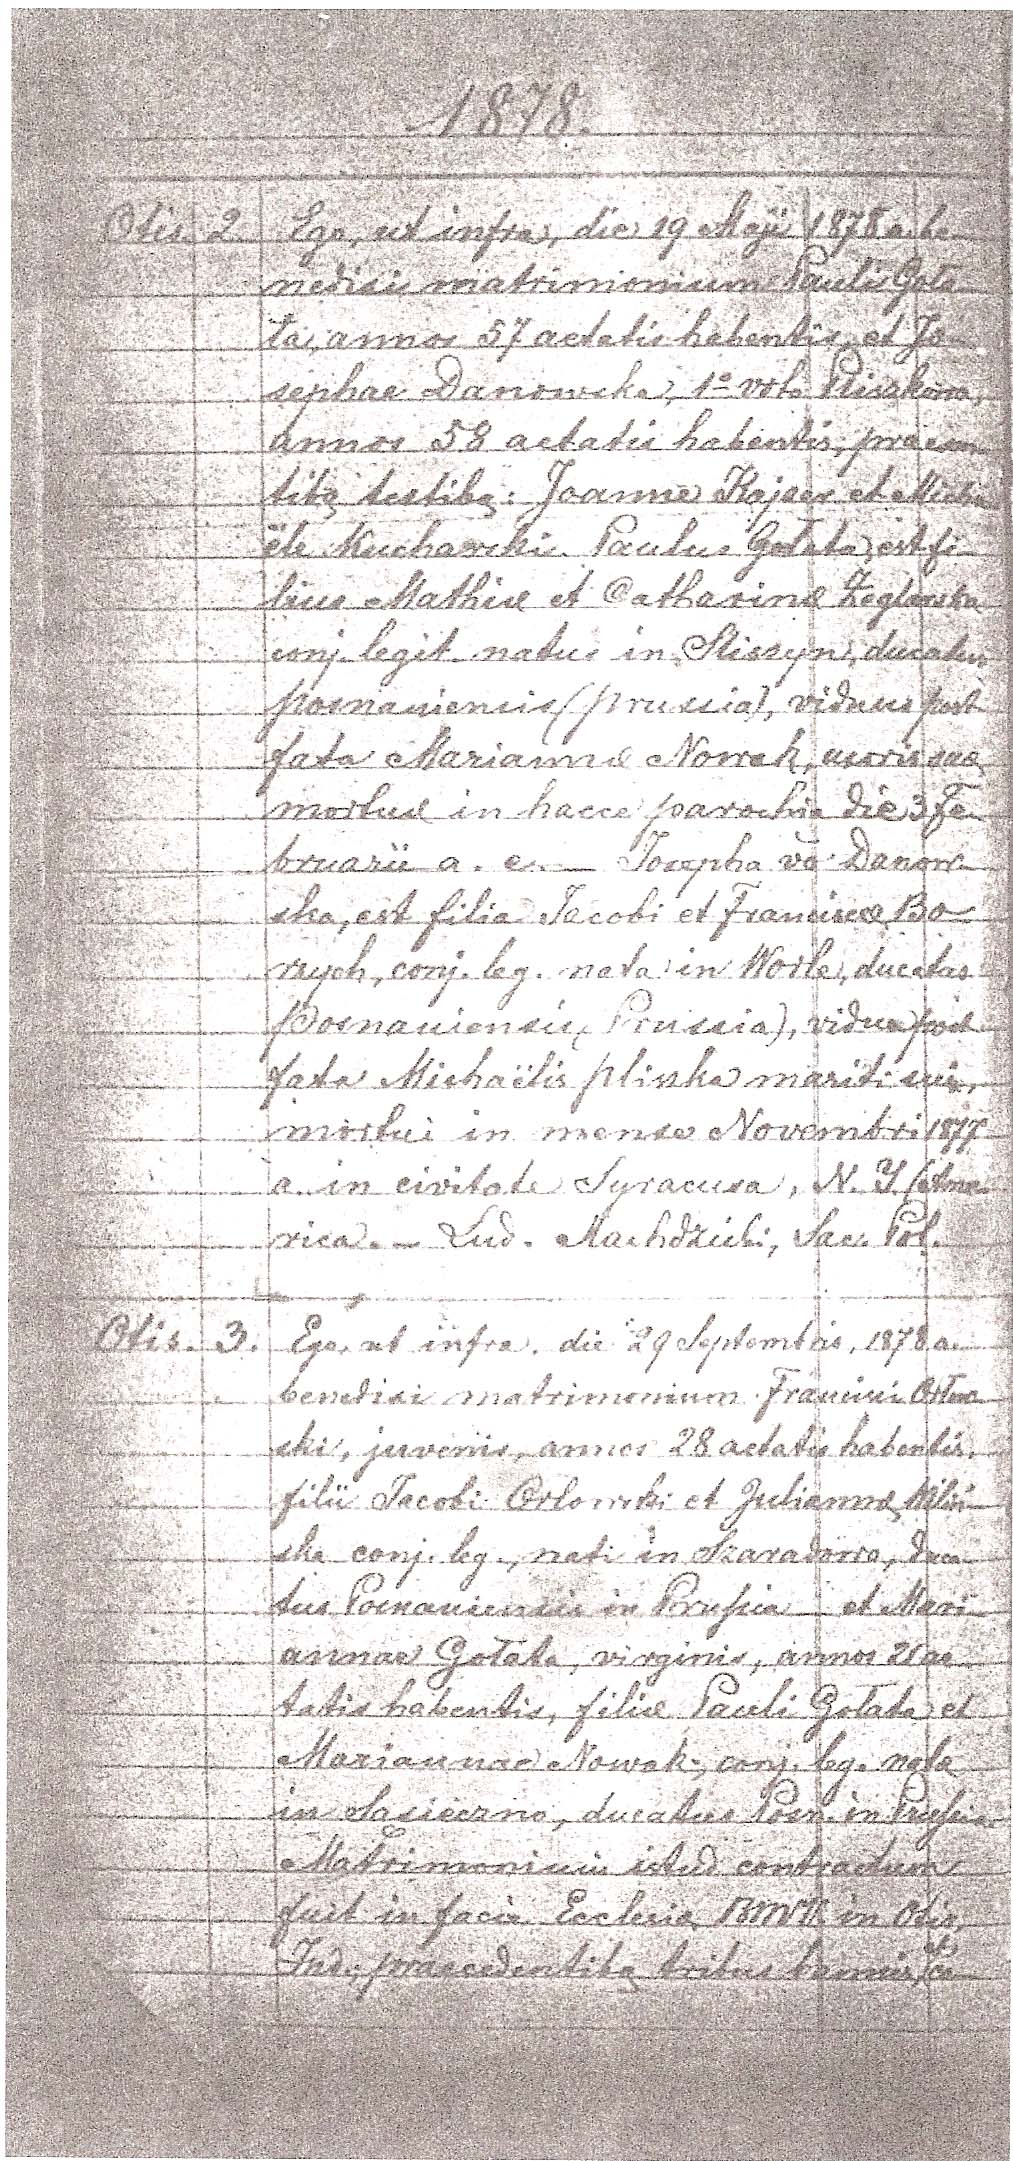 1878.
Otis. 2. Ego, ut infra, die 19 Maji 1878 a. be-
nedixi matrimonium Pauli Gola-
ta, annos 57 aetatis habentis, et Jo-
sephae Danowska, 1º voto
annos 58 aetatis habentis, praesen-
tibq testibq: Joanne Kajser et Micha-
ële Kucharski. Paulus Gołata, est fi-
lius Mathiæ et Catharinæ Żeglarska
conj. legit. natus in ducatus
posnaniensis (prussia), viduus post
fata Mariannæ Nowak, uxoris suæ,
mortuæ in hacce parochia die 3 Fe-
bruarii a. c. — Josepha vo Danow-
ska, est filia Jacobi et Franciscæ Bo-
rzych, conj. leg. nata in ducatus
Posnaniensis, (Prussia), vidua post
fata Michaëlis pliszka mariti sui,
mortui in mense Novembri 1877
a. in civitate Syracusa, N. Y. (Ame-
rica. — Lud. Machdzicki, Sac. Pol.
Otis. 3. Ego, ut infra. die 29 Septembris, 1878 a.
benedixi matrimonium Francisci Orłow-
ski, juvenis, annos 28 aetatis habentis,
filii Jacobi Orlowski et Juliannæ
ska conj. leg., nati in Szaradowo, duca-
tus Posnaniensis in Prussia et Mari-
annae Gołata, virginis, annos 21 ae-
tatis habentis, filiæ Pauli Gołata et
Mariannae Nowak, conj. leg. natæ
in Sasieczno, ducatus Posn. in Prussia.
Matrimonium istud contractum
fuit in facie Ecclesiæ BMV in Otis,
Ind., praecedentibq tribus bannis, et co-